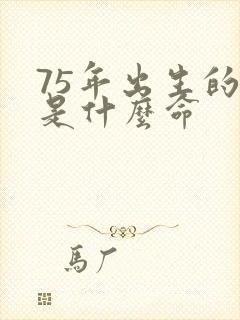 75年出生的
是什麼命
馬厂